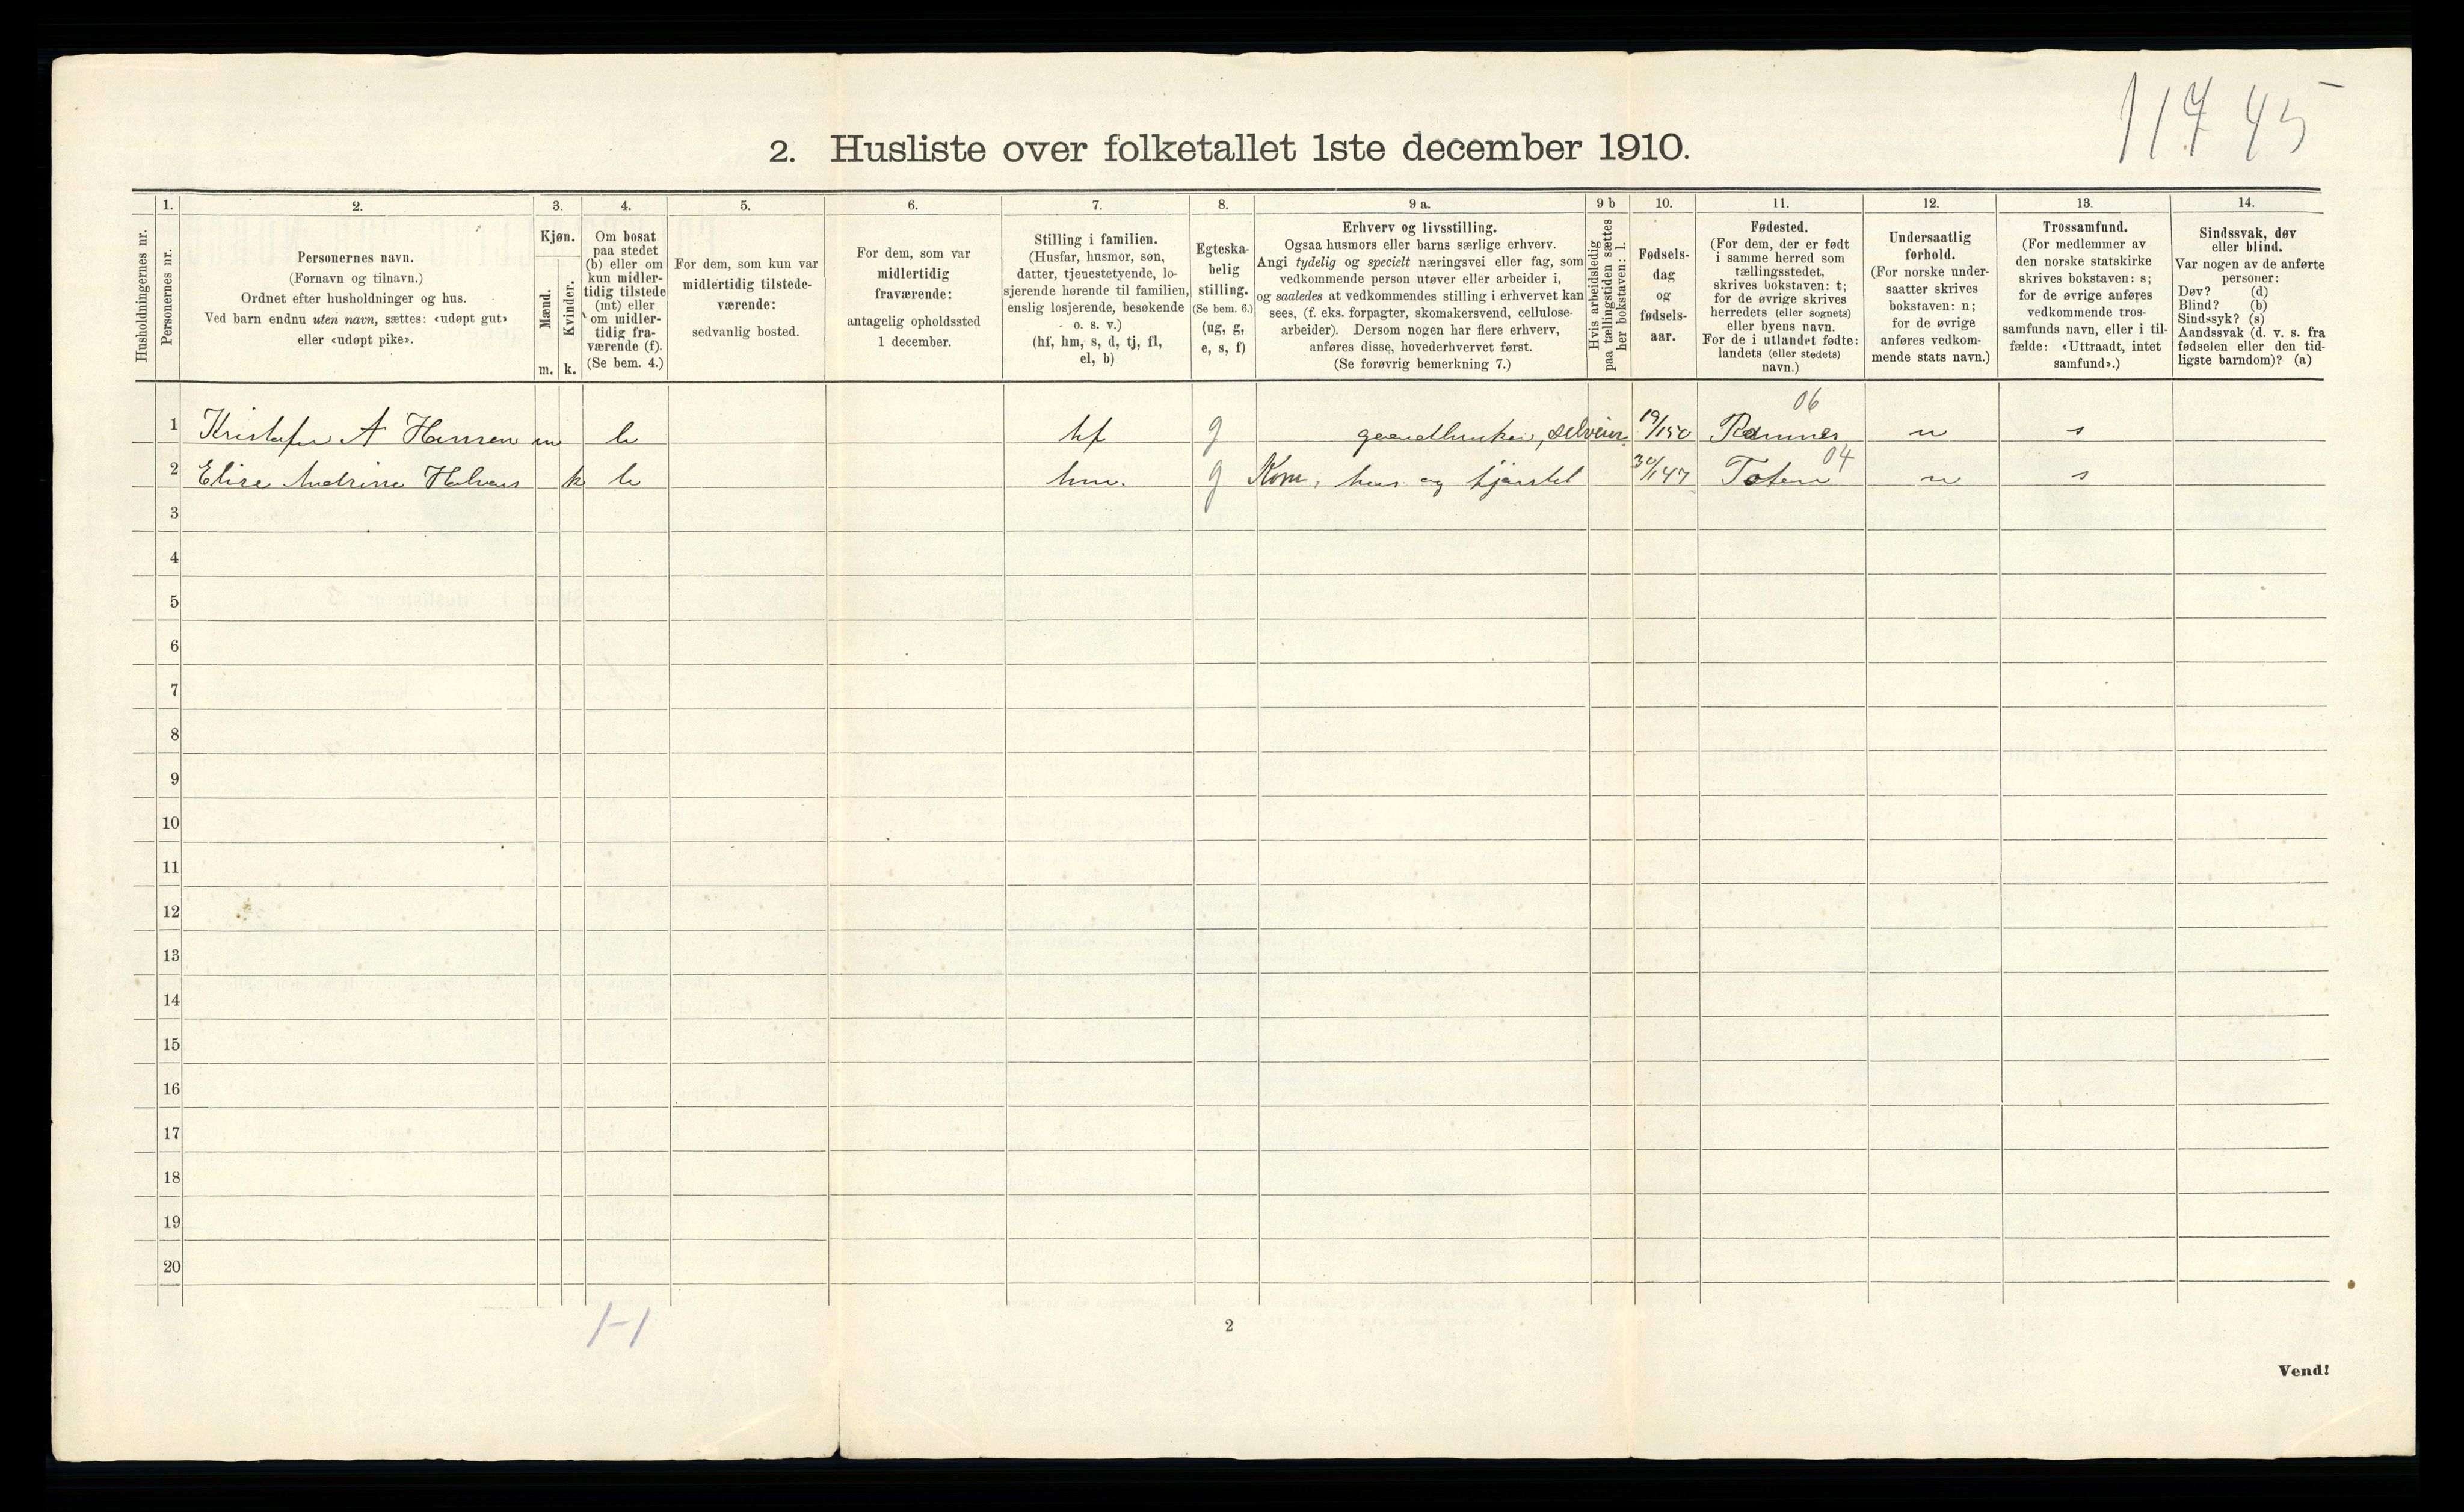 117 45
2. Husliste over folketallet 1ste december 1910.
Husholdningernes nr.
1.
Personernes nr.
2.
Personernes navn.
(Fornavn og tilnavn.)
Ordnet efter husholdninger og hus.
Ved barn endnu uten navn, sættes: «udøpt gut»
eller «udøpt pike».
3.
Kjøn.
Mænd.
Kvinder.
m. k.
4.
Om bosat
paa stedet
(b) eller om
kun midler-
tidig tilstede
(mt) eller
om midler-
tidig fra-
værende (f).
(Se bem. 4.)
5.
For dem, som kun var
midlertidig tilstede-
værende:
sedvanlig bosted.
6.
For dem, som var
midlertidig
fraværende:
antagelig opholdssted
1 december.
7.
Stilling i familien.
(Husfar, husmor, søn,
datter, tjenestetyende, lo-
sjerende hørende til familien,
enslig losjerende, besøkende
o. s. v.)
(hf, hm, s, d, tj, fl,
el, b)
8.
Egteska-
belig
stilling.
(Se bem. 6.)
(ug, g,
e, s, f)
9 a.
Erhverv og livsstilling.
Ogsaa husmors eller barns særlige erhverv.
Angi tydelig og specielt næringsvei eller fag, som
vedkommende person utøver eller arbeider i,
og saaledes at vedkommendes stilling i erhvervet kan
sees, (f. eks. forpagter, skomakersvend, cellulose-
arbeider). Dersom nogen har flere erhverv,
anføres disse, hovederhvervet først.
(Se forøvrig bemerkning 7.)
9 b
Hvis arbeidsledig
paa tællingstiden sættes
her bokstaven: l.
10.
Fødsels-
dag
og
fødsels-
aar.
11.
Fødested.
(For dem, der er født
i samme herred som
tællingsstedet,
skrives bokstaven: t;
for de øvrige skrives
herredets (eller sognets)
eller byens navn.
For de i utlandet fødte:
landets (eller stedets)
navn.)
12.
Undersaatlig
forhold.
(For norske under-
saatter skrives
bokstaven: n;
for de øvrige
anføres vedkom-
mende stats navn.)
13.
Trossamfund.
(For medlemmer av
den norske statskirke
skrives bokstaven: s;
for de øvrige anføres
vedkommende tros-
samfunds navn, eller i til-
fælde: «Uttraadt, intet
samfund».)
14.
Sindssvak, døv
eller blind.
Var nogen av de anførte
personer:
Døv? (d)
Blind? (b)
Sindssyk? (s)
Aandssvak (d. v. s. fra
fødselen eller den tid-
ligste barndom)? (a)
06
1 Kristofer A Hansen m b hf g gaardbruker, selveier 19/1 50 Ramnes n s
04
2 Elise Andrine k b hm. g Kone, hus og 30/1 47 Toten n s
3
4
5
6
7
8
9
10
11
12
13
14
15
16
17
18
19
20
1-1
2
Vend!